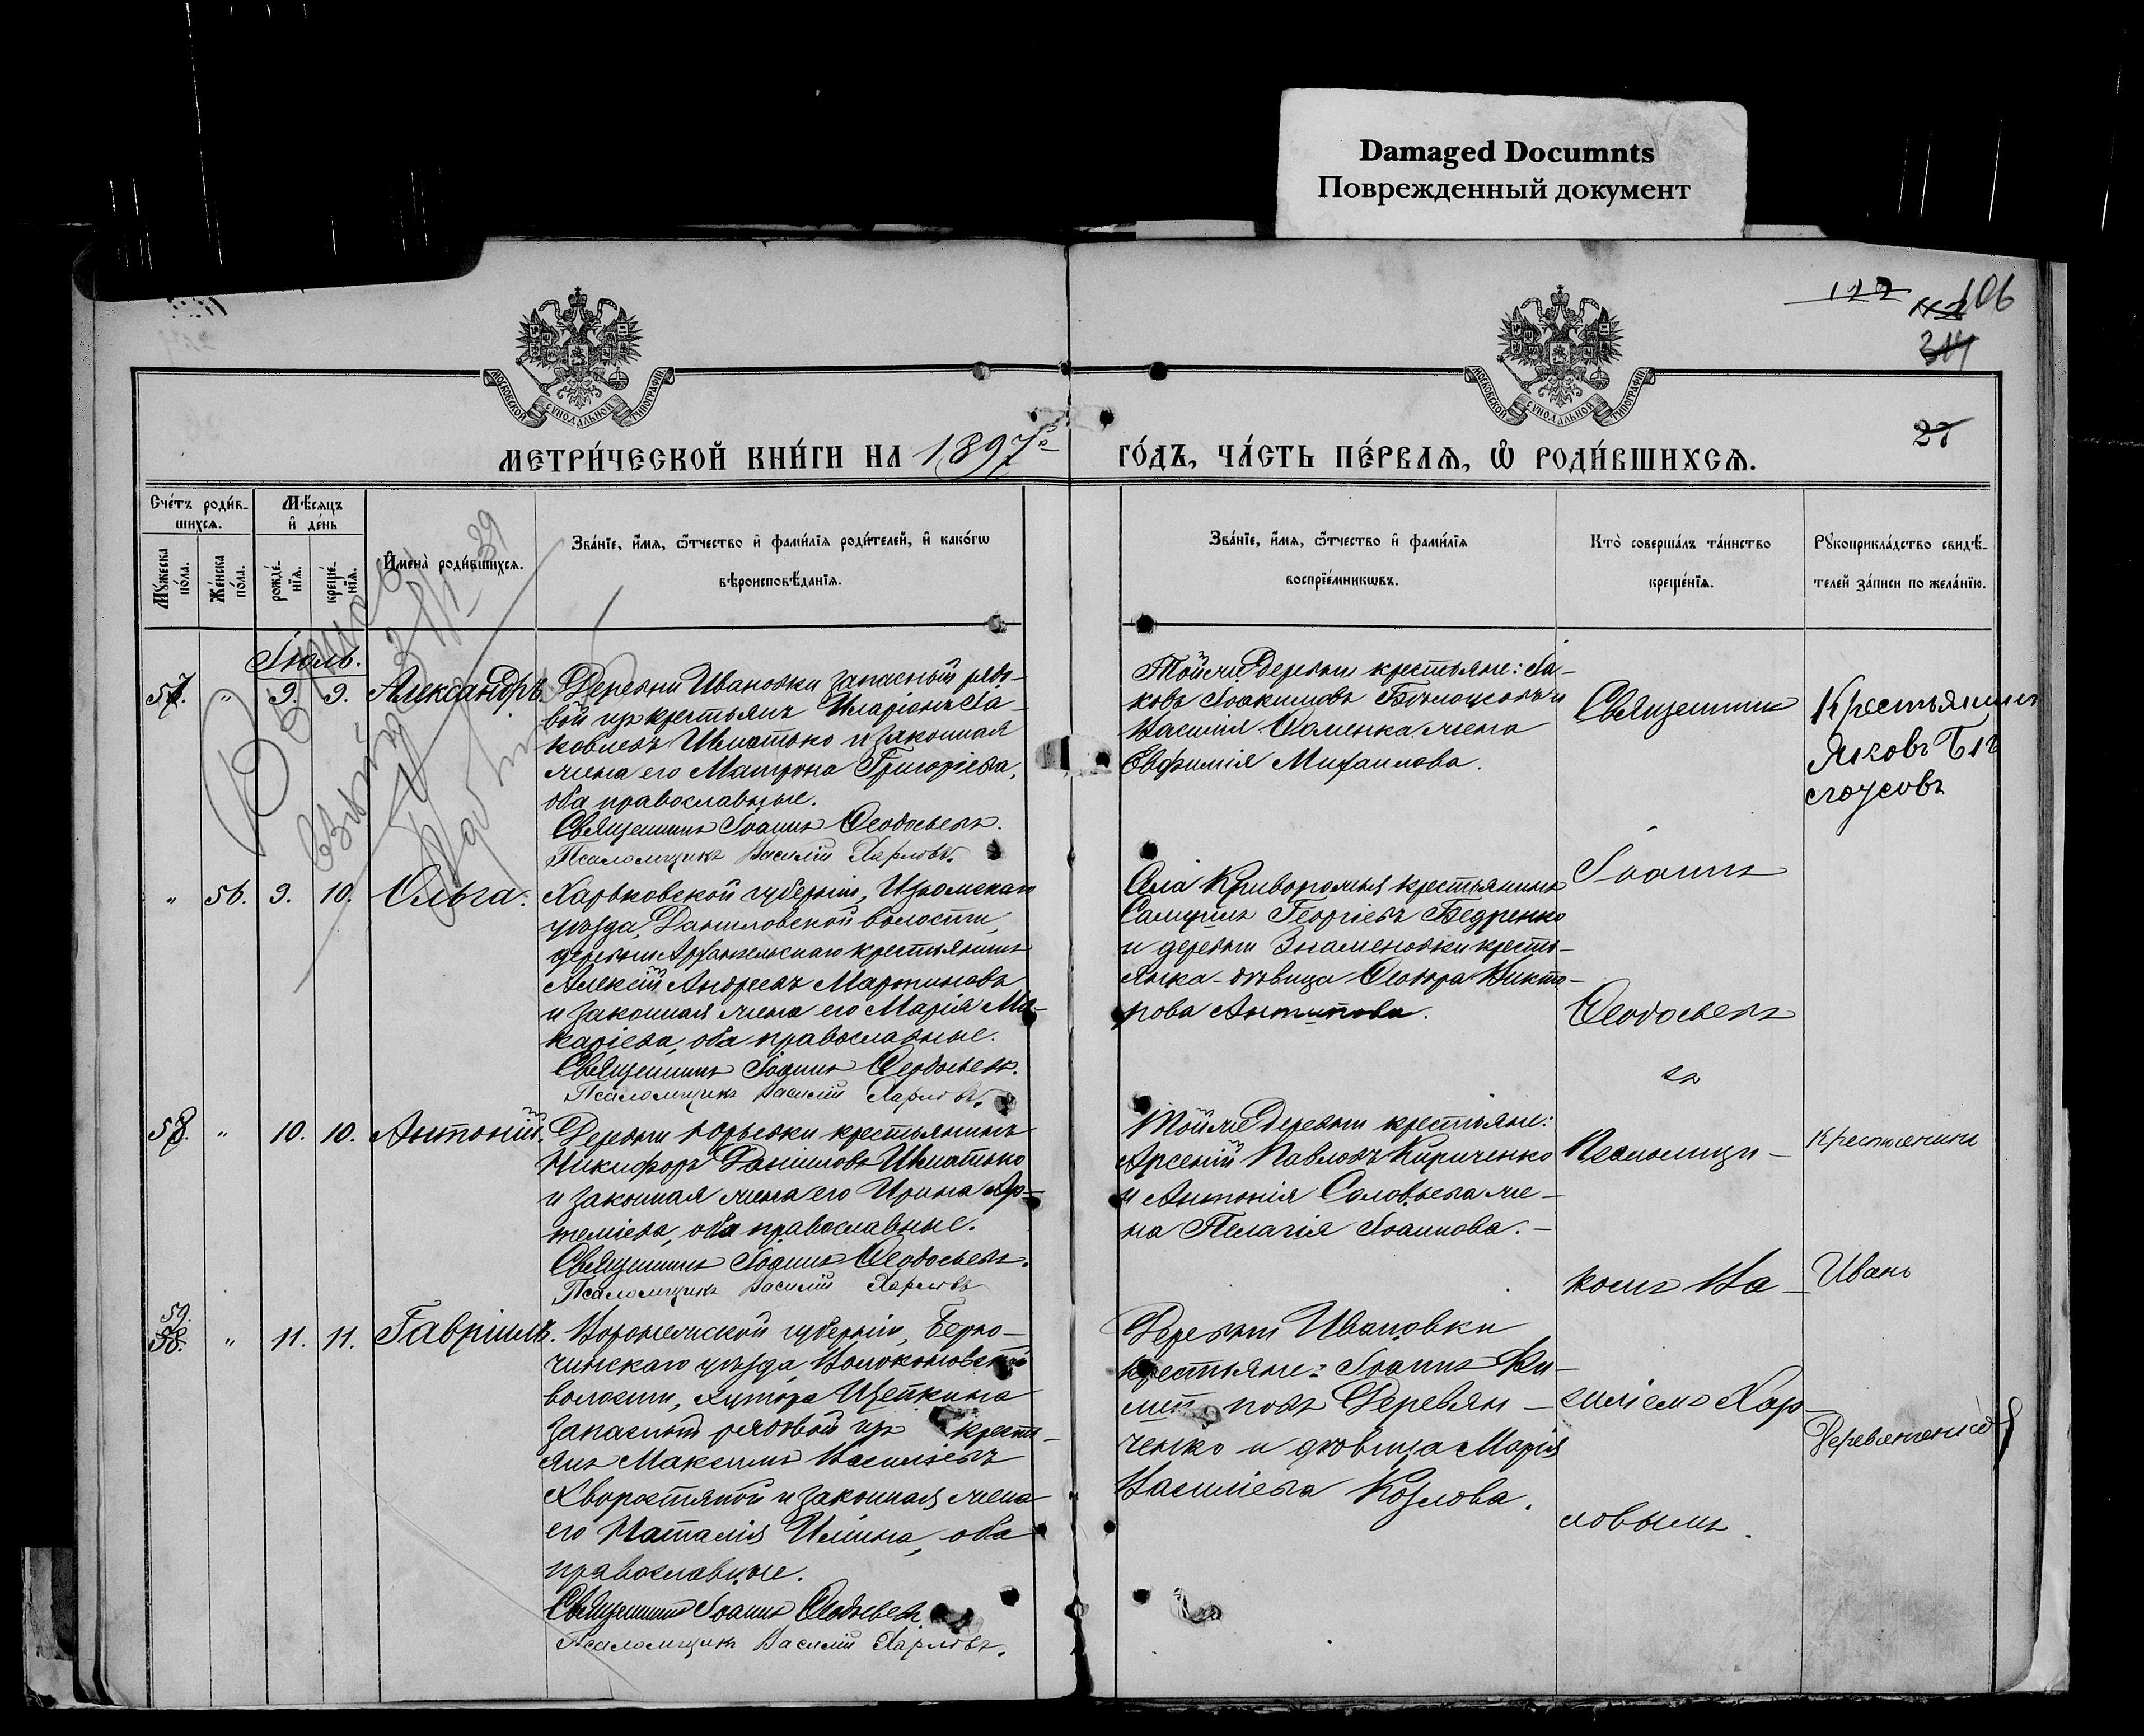 Damaged Documnts
Поврежденный документ
122
112
106
314
27
МОСКОВСКОЙ СѴНОДАЛЬНОЙ ТИПОГРАФІИ
МОСКОВСКОЙ СѴНОДАЛЬНОЙ ТИПОГРАФІИ
МЕТРИ́ЧЕСКОЙ КНИ́ГИ НА 1897й
ГО́ДЪ, ЧА́СТЬ ПЕ́РВАѦ, Ѽ РОДИ́ВШИХСѦ.
Сче́тъ роди́в-
шихсѧ.
Мѣ́сяцъ
и҆ де́нь
Мꙋ́жеска по́ла.
Же́нска по́ла.
рожде́-
нїѧ.
креще́-
нїѧ.
И҆мена̀ роди́вшихсѧ.
Зва́нїе, и҆́мѧ, ѻ҆́тчество и҆ фами́лїѧ роди́телей, и҆ како́гѡ
вѣроисповѣ́данїѧ.
Зва́нїе, и҆́мѧ, ѻ҆́тчество и҆ фами́лїѧ
воспрїе́мникѡвъ.
Кто̀ соверша́лъ та́инство
креще́нїѧ.
Рꙋкоприкла́дство свидѣ́-
телей за́писи по жела́нїю.
Іюль.
57. " 9. 9. Александръ.
Деревни Ивановки запасный рядо-
вой изъ крестьянъ Иларіонъ Іа-
ковлевъ Игнатько и законная
жена его Матрона Григоріева,
оба православные.
Священникъ Іоаннъ Ѳеодосьевъ.
Псаломщикъ Василій Харловъ.
Той же деревни крестьяне: Іа-
ковъ Іоакимовъ Бѣлоусовъ и
Василія Ѳоменка жена
Евфимія Михаилова.
Священникъ
Крестьянинъ
Яковъ Бѣ
лоусовъ
" 56. 9. 10. Ольга.
Харьковской губерніи, Изюмскаго
уѣзда, Даниловской волости,
деревни Архангельскаго крестьянинъ
Алексій Андреевъ Мартиновъ
и законная жена его Марія Ма-
каріева, оба православные.
Священникъ Іоаннъ Ѳеодосьевъ.
Псаломщикъ Василій Харловъ.
Села Криворожья крестьянинъ
Самуилъ Георгіевъ Бедренко
и деревни Знаменовки кресть-
янка-дѣвица Ѳеодора Викто-
рова Антипова.
Іоаннъ
Ѳеодосьевъ
съ
58. " 10. 10. Антоній.
Деревни Юрьевки крестьянинъ
Никифоръ Даніиловъ Игнатько
и законная жена его Ирина Ар-
теміева, оба православные.
Священникъ Іоаннъ Ѳеодосьевъ.
Псаломщикъ Василій Харловъ
Той же деревни крестьяне:
Арсеній Павловъ Кириченко
и Антонія Соловьева же-
на Пелагія Іоаннова.-
Псаломщи-
комъ Ва-
Крестьянинъ
Иванъ
59.
58. " 11. 11. Гавріилъ.
Воронежской губерніи, Бирю-
чинскаго уѣзда, Волоконовской
волости, хутора Щепкина
запасный рядовой изъ крестъ-
янъ Максимъ Васильевъ
Хворостяной и законная жена
его Наталія Иліина, оба
православные.
Священникъ Іоаннъ Ѳеодосьевъ
Псаломщикъ Василій Харловъ.
Деревни Ивановки
крестьяне: Іоаннъ
Деревян-
ченко и дѣвица Марія
Васильева Козлова.
силіемъ Хар-
ловымъ.